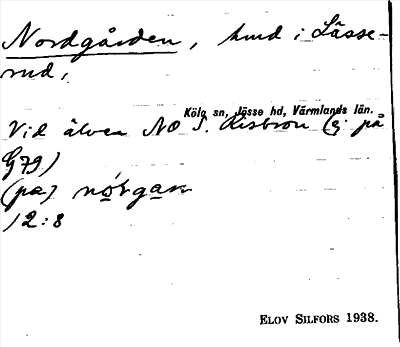 Nordgården, hmd i Lässe-
rud,
Köla sn, Jösse hd, Värmlands län.
Vid älven NO S. Risbron (ej på
G79)
(pa) nórgaɳ
12:8
ELOV SILFORS 1938.